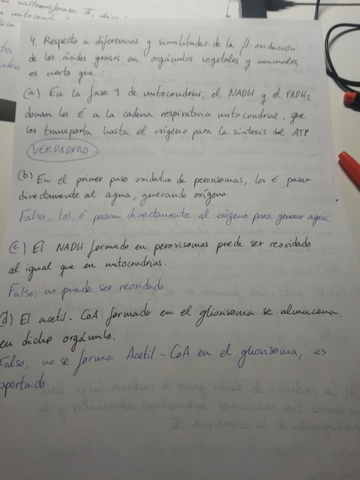 4. Respecto a diferencias y similitudes de la β-oxidación
de los ácidos grasos en orgánulos vegetales y animales,
es cierto que:
(a) En la fase 3 de mitocondrias, el NADH y el FADH2
donan los é a la cadena respiratoria mitocondrial, que
los transporta hasta el oxígeno para la síntesis del ATP
VERDADERO
(b) En el primer paso oxidativo de peroxisomas, los é pasan
directamente al agua, generando oxígeno.
Falso, los é pasan directamente al oxígeno para generar agua.
(c) El NADH formado en peroxisomas puede ser reoxidado
al igual que en mitocondrias.
Falso, no puede ser reoxidado.
(d) El acetil-CoA formado en el glioxisoma se almacena
en dicho orgánulo.
Falso, no se forma Acetil-CoA en el glioxisoma, es
portado.